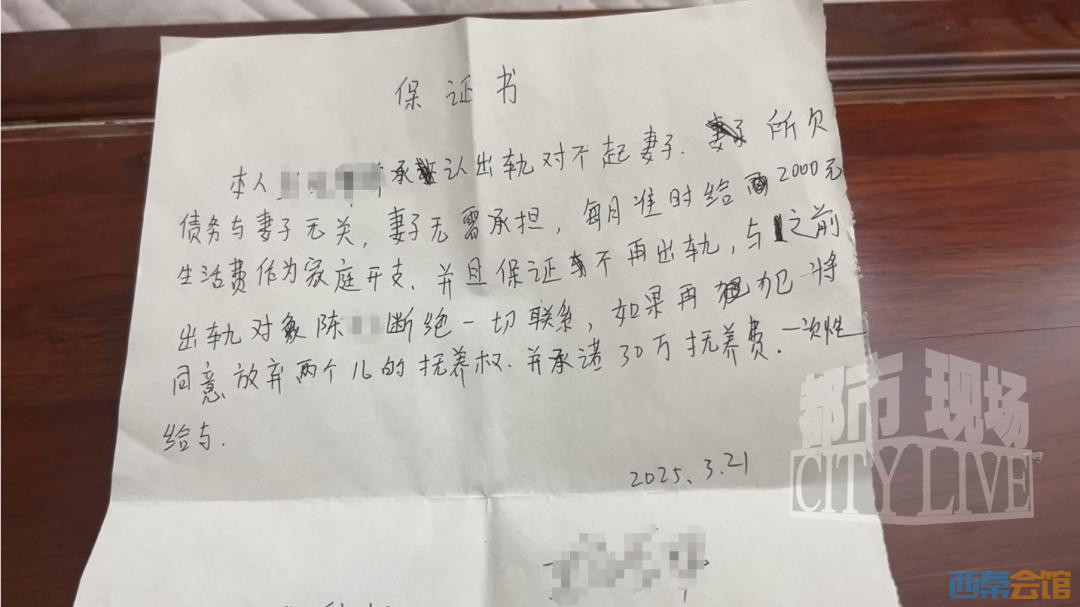 保证书
本人 承认出轨对不起妻子. 所欠
债务与妻子无关, 妻子无需承担, 每月准时给 2000元
生活费作为家庭开支. 并且保证 不再出轨, 与 之前
出轨对象陈 断绝一切联系, 如果再 犯 将
同意放弃两个儿的抚养权. 并承诺30万抚养费. 一次性
给与.
2025.3.21
都市现场
CITY LIVE
西秦会馆